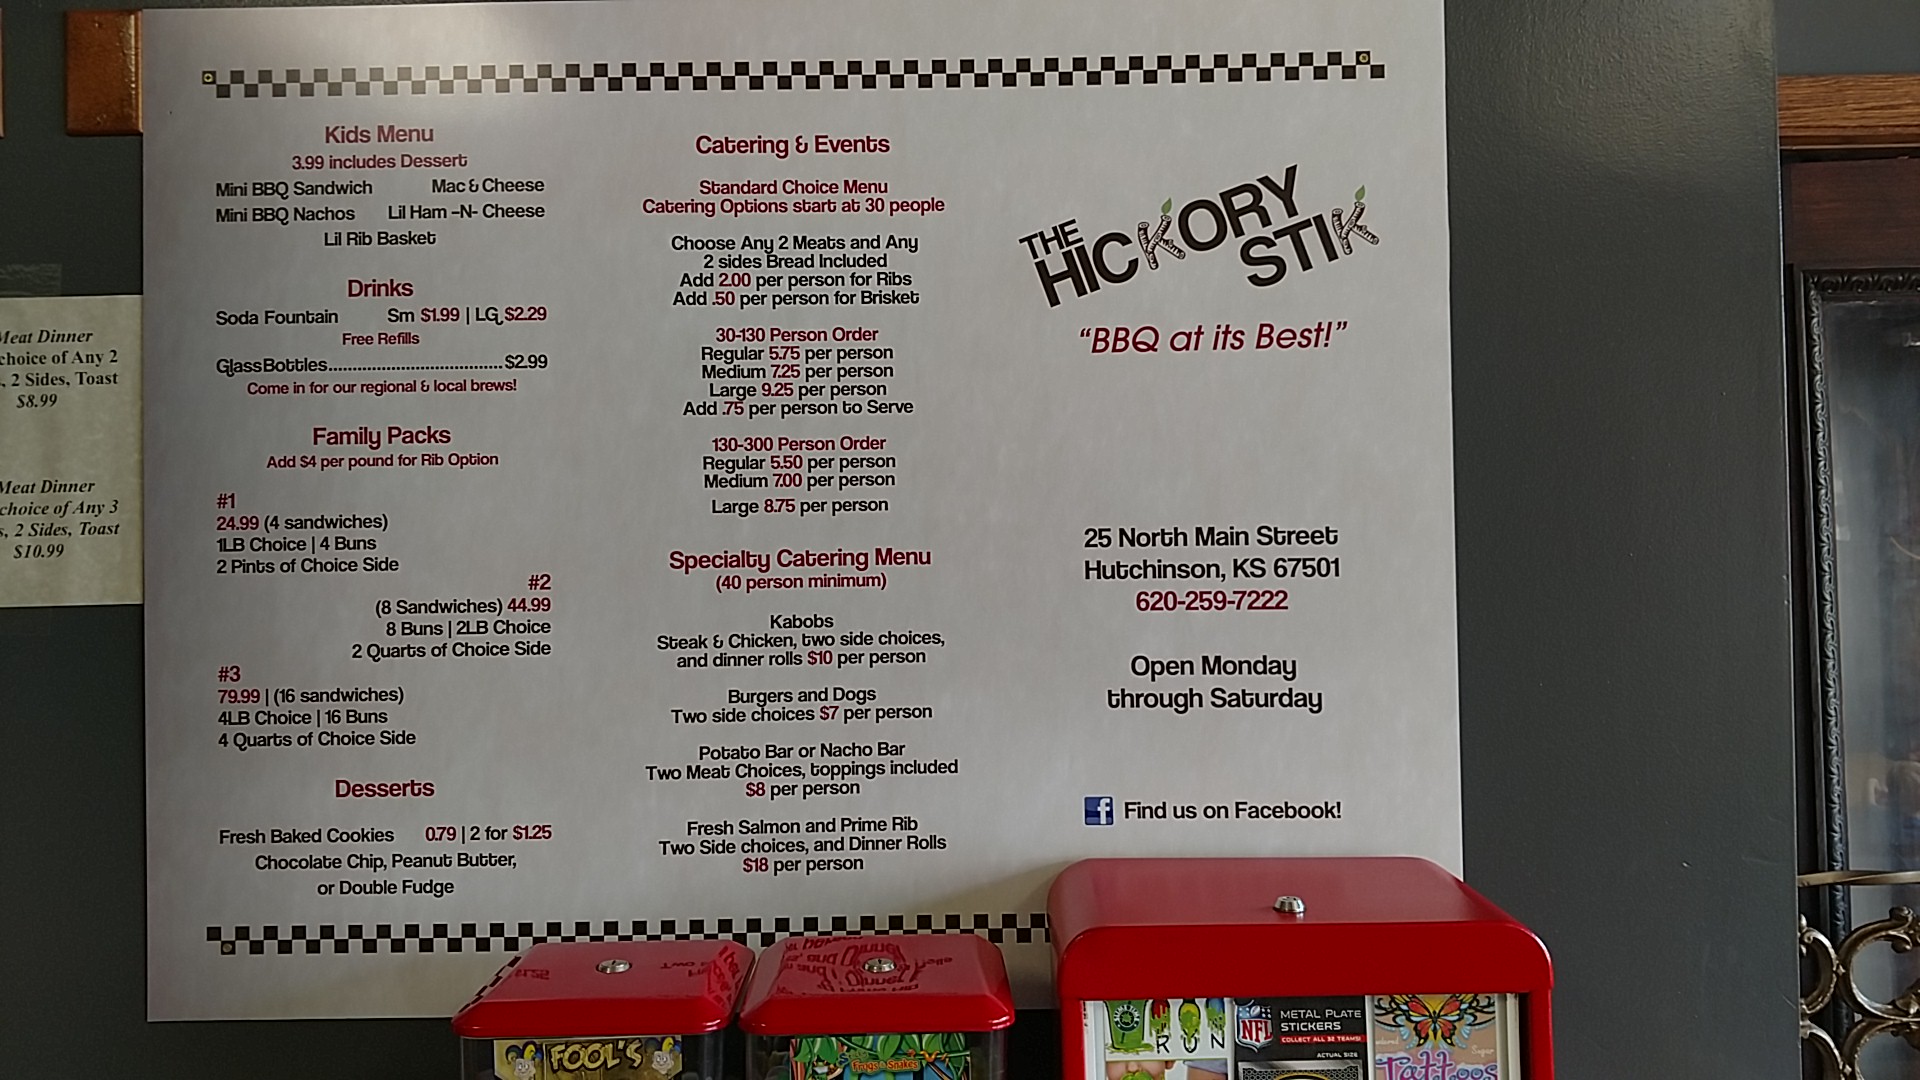 Meat Dinner
choice of Any 2
, 2 Sides, Toast
$8.99
Meat Dinner
choice of Any 3
s, 2 Sides, Toast
$10.99
Kids Menu
3.99 includes Dessert
Mini BBQ Sandwich Mac & Cheese
Mini BBQ Nachos Lil Ham -N- Cheese
Lil Rib Basket
Drinks
Soda Fountain Sm $1.99 | LG $2.29
Free Refills
Glass Bottles....................................$2.99
Come in for our regional & local brews!
Family Packs
Add $4 per pound for Rib Option
#1
24.99 (4 sandwiches)
1LB Choice | 4 Buns
2 Pints of Choice Side
#2
(8 Sandwiches) 44.99
8 Buns | 2LB Choice
2 Quarts of Choice Side
#3
79.99 | (16 sandwiches)
4LB Choice | 16 Buns
4 Quarts of Choice Side
Desserts
Fresh Baked Cookies 0.79 | 2 for $1.25
Chocolate Chip, Peanut Butter,
or Double Fudge
Catering & Events
Standard Choice Menu
Catering Options start at 30 people
Choose Any 2 Meats and Any
2 sides Bread Included
Add 2.00 per person for Ribs
Add .50 per person for Brisket
30-130 Person Order
Regular 5.75 per person
Medium 7.25 per person
Large 9.25 per person
Add .75 per person to Serve
130-300 Person Order
Regular 5.50 per person
Medium 7.00 per person
Large 8.75 per person
Specialty Catering Menu
(40 person minimum)
Kabobs
Steak & Chicken, two side choices,
and dinner rolls $10 per person
Burgers and Dogs
Two side choices $7 per person
Potato Bar or Nacho Bar
Two Meat Choices, toppings included
$8 per person
Fresh Salmon and Prime Rib
Two Side choices, and Dinner Rolls
$18 per person
THE
HICKORY
STIK
"BBQ at its Best!"
25 North Main Street
Hutchinson, KS 67501
620-259-7222
Open Monday
through Saturday
f Find us on Facebook!
FOOL'S
Frogs & Snakes
RUN
NFL
METAL PLATE
STICKERS
COLLECT ALL 32 TEAMS!
ACTUAL SIZE
Sugar
Tattoos